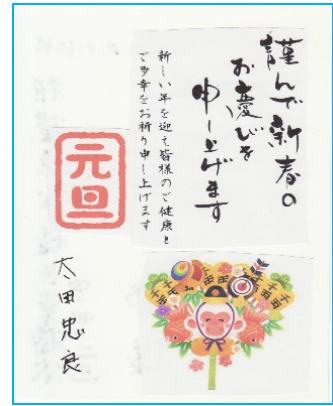 謹んで新春の
お慶びを
申し上げます
新しい年を迎え皆様のご健康と
ご多幸をお祈り申し上げます
元旦
太田忠良